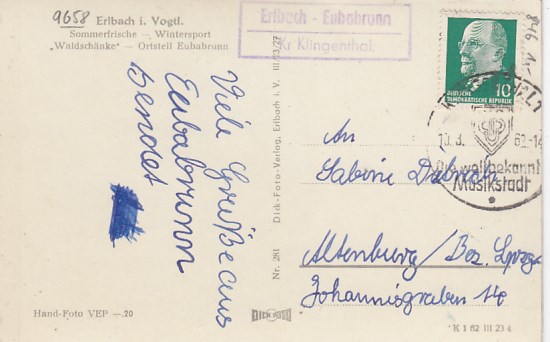 9658
Erlbach i. Vogtl.
Sommerfrische — Wintersport
„Waldschänke" - Ortsteil Eubabrunn
Erlbach - Eubabrunn
Kr Klingenthal.
10
DEUTSCHE
DEMOKRATISCHE REPUBLIK
10.3.
Die weltbekannte
Musikstadt
Viele Grüße aus
Eubabrunn
sendet
Dick-Foto-Verlag, Erlbach i. V. III/23/27
Nr. 281
An
Sabine
Altenburg / Bez. Lpzg.
Johannisgraben 14
Hand-Foto VEP —.20
DICK FOTO
K 1 62 III 23 4